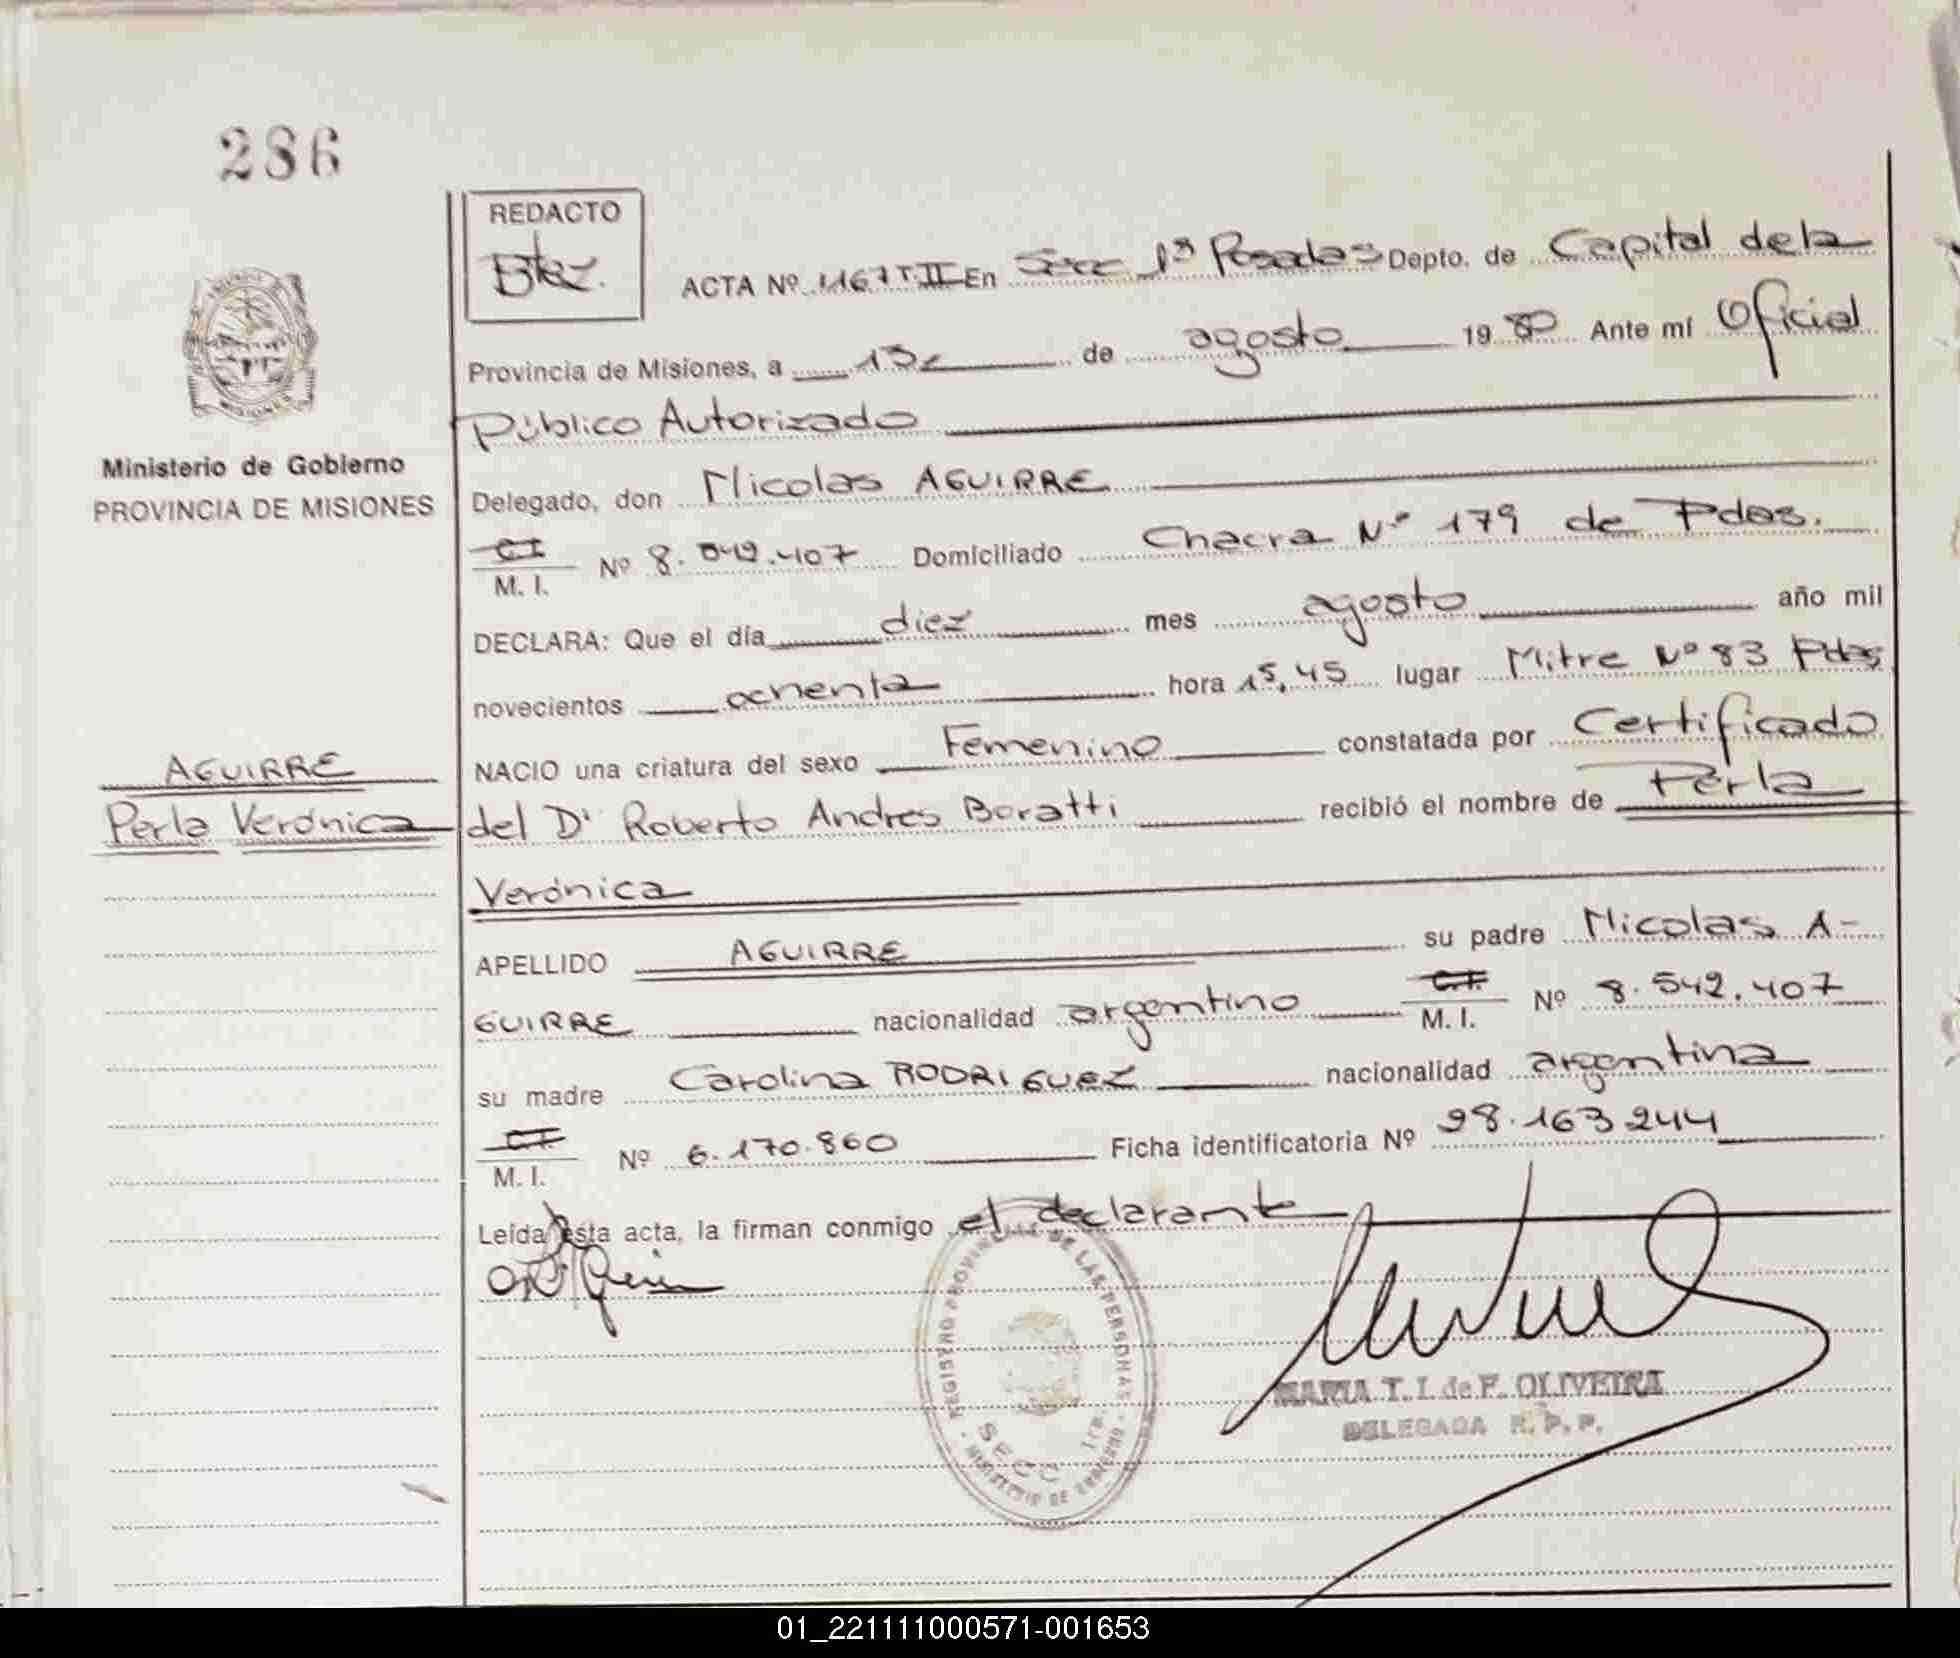 286
REDACTO
Btez.
ACTA Nº 1167 T. II En Secc 1ª Posadas Depto. de Capital de la
Provincia de Misiones, a 13 de agosto 1980 Ante mí Oficial
Público Autorizado
MISIONES
Ministerio de Gobierno
PROVINCIA DE MISIONES
Delegado, don Nicolas AGUIRRE
C.I. M. I. Nº 8.542.407 Domiciliado Chacra Nº 179 de Pdas.
DECLARA: Que el día diez mes agosto año mil
novecientos ochenta hora 15,45 lugar Mitre Nº 83 Pdas
NACIO una criatura del sexo Femenino constatada por Certificado
AGUIRRE
Perla Verónica
del Dr Roberto Andres Boratti recibió el nombre de Perla
Verónica
APELLIDO AGUIRRE su padre Nicolas A-
GUIRRE nacionalidad argentino C.I. M. I. Nº 8.542.407
su madre Carolina RODRIGUEZ nacionalidad argentina
C.I. M. I. Nº 6.170.860 Ficha identificatoria Nº 98.163.244
Leída esta acta, la firman conmigo el declarante
REGISTRO PROVINCIAL DE LAS PERSONAS
SECC 1ra.
MINISTERIO DE GOBIERNO
MARIA T. I. de F. OLIVEIRA
DELEGADA R. P. P.
01_221111000571-001653